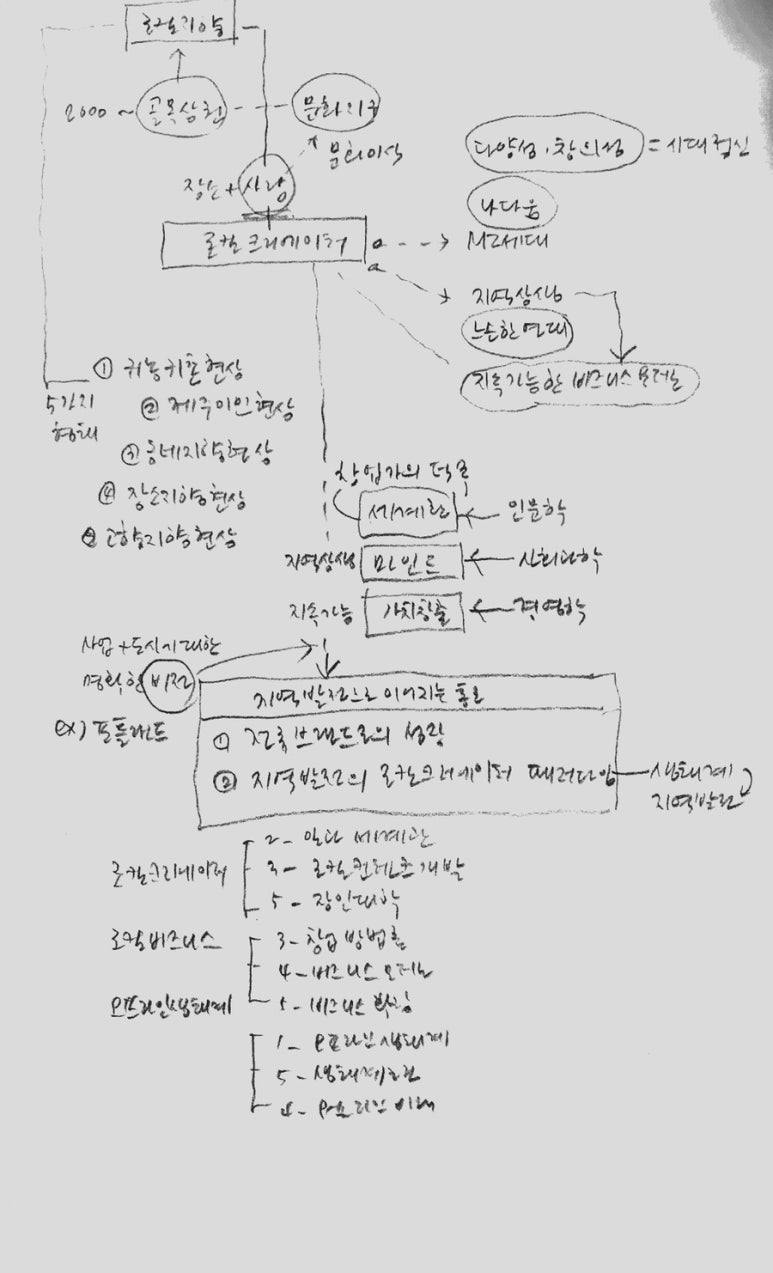 로컬지향
2000 ~ 골목상권
문화지구
문화의식
장소 + 사람
다양성 · 창의성 = 시대정신
나다움
로컬크리에이터
MZ세대
지역상생
느슨한연대
지속가능한 비즈니스모델
5가지
형태
① 귀농귀촌현상
② 제주이민현상
③ 동네지향현상
④ 장소지향현상
고향지향현상
창업가의 덕목
세계관
인문학
지역상생 마인드
사회과학
지속가능 가치창출
경영학
사업 + 도시에 대한
명확한 비전
ex) 포틀랜드
지역발전으로 이어지는 통로
① 전국브랜드로의 성장
② 지역발전의 로컬크리에이터 패러다임
생태계
지역발전
로컬크리에이터
2 - 일과 세계관
3 - 로컬컨텐츠개발
5 - 장인대학
로컬비즈니스
3 - 창업 방법론
4 - 비즈니스 모델
5 - 비즈니스 확장
오프라인생태계
1 - 오프라인 생태계
5 - 생태계
4 - 오프라인 미래